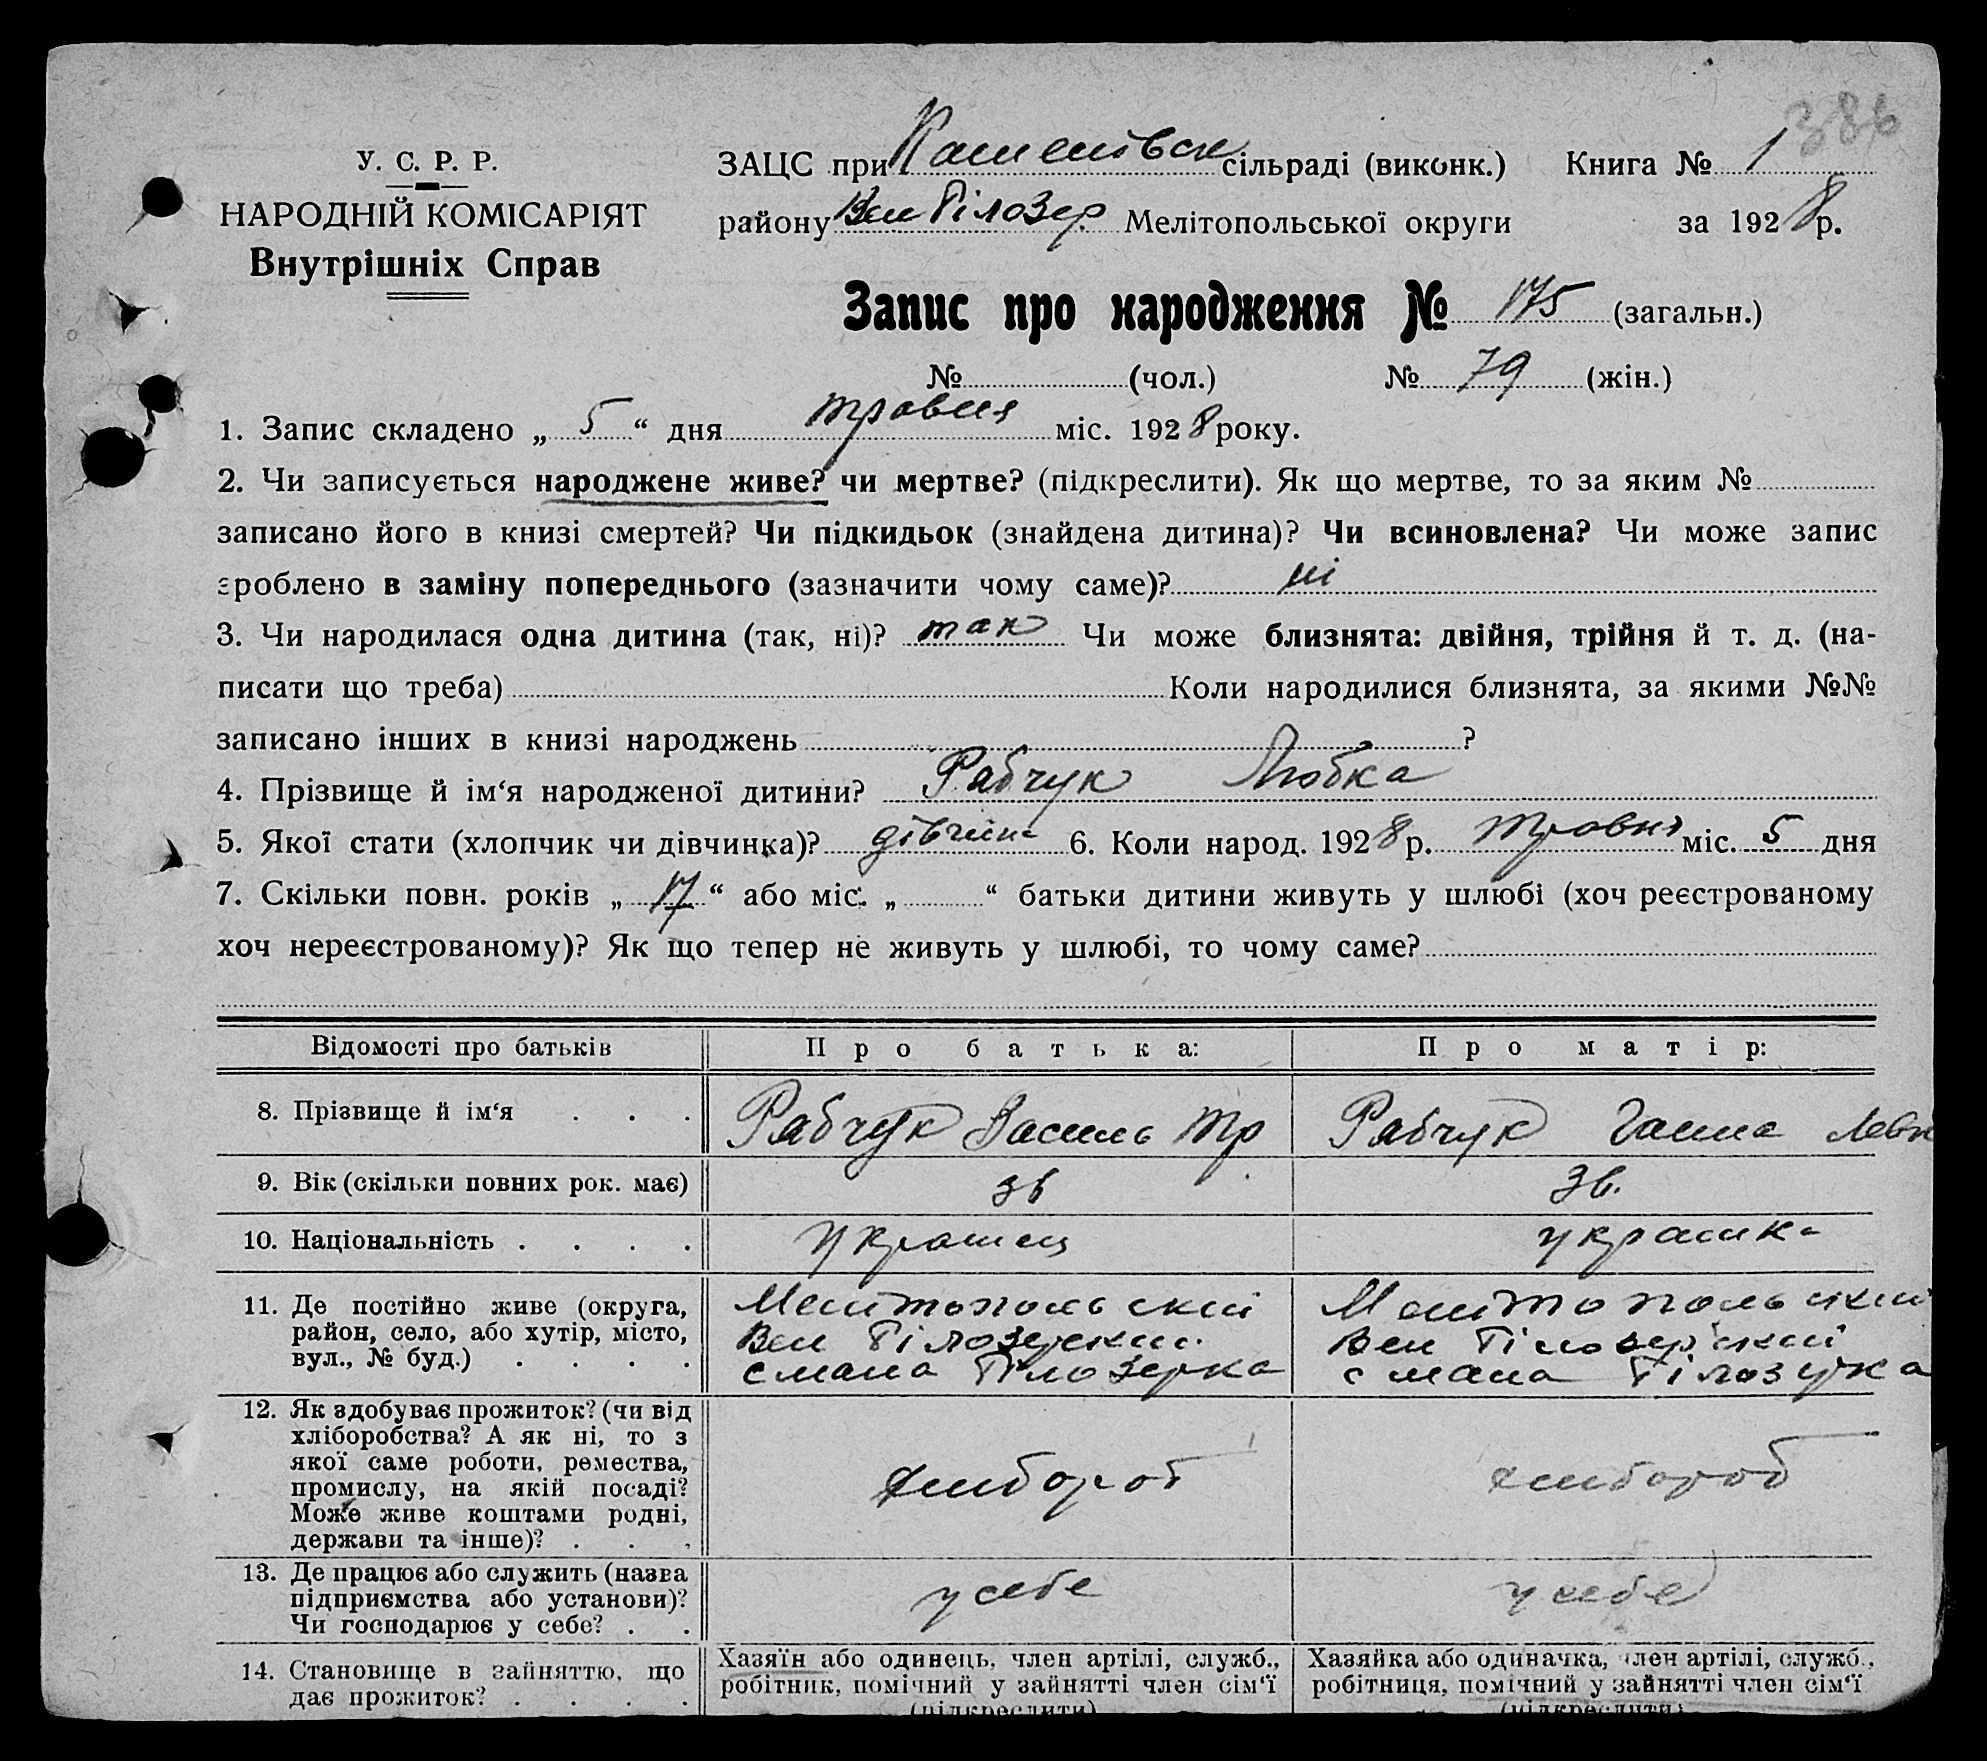 386
У. С. Р. Р.
НАРОДНІЙ КОМІСАРІЯТ
Внутрішніх Справ
ЗАЦС при сільраді (виконк.) Книга № 1
району Вел Білозер Мелітопольської округи за 1928 р.
Запис про народження № 175 (загальн.)
№ (чол.) № 79 (жін.)
1. Запис складено „ 5 “ дня травня міс. 1928 року.
2. Чи записується народжене живе? чи мертве? (підкреслити). Як що мертве, то за яким №
записано його в книзі смертей? Чи підкидьок (знайдена дитина)? Чи всиновлена? Чи може запис
зроблено в заміну попереднього (зазначити чому саме)? ні
3. Чи народилася одна дитина (так, ні)? так Чи може близнята: двійня, трійня й т. д. (на-
писати що треба) Коли народилися близнята, за якими №№
записано інших в книзі народжень ?
4. Прізвище й ім‘я народженої дитини? Рябчук Любка
5. Якої стати (хлопчик чи дівчинка)? дівчин 6. Коли народ. 1928 р. травня міс. 5 дня
7. Скільки повн. років „ 17 “ або міс. „ “ батьки дитини живуть у шлюбі (хоч реєстрованому
хоч нереєстрованому)? Як що тепер не живуть у шлюбі, то чому саме?
Відомості про батьків Про батька: Про матір:
8. Прізвище й ім‘я . . . Рябчук Василь Тр Рябчук Ганна Левк
9. Вік (скільки повних рок. має) 36 36.
10. Національність . . . . украінец украинка
11. Де постійно живе (округа,
район, село, або хутір, місто,
вул., № буд.) . . . .
Мелитопольский
Вел Білозерский
с мала Білозерка
Мелитопольский
Вел Білозерский
с мала Білозерка
12. Як здобуває прожиток? (чи від
хліборобства? А як ні, то з
якої саме роботи, ремества,
промислу, на якій посаді?
Може живе коштами родні,
держави та інше)? . . .
хлибороб
хлибороб
13. Де працює або служить (назва
підприємства або установи)?
Чи господарює у себе? . .
у себе
у себе
14. Становище в зайняттю, що
дає прожиток? . . . .
Хазяїн або одинець, член артілі, служб.,
робітник, помічний у зайнятті член сім‘ї
(підкреслити)
Хазяйка або одиначка, член артілі, служб.,
робітниця, помічний у зайнятті член сім‘ї
(підкреслити)